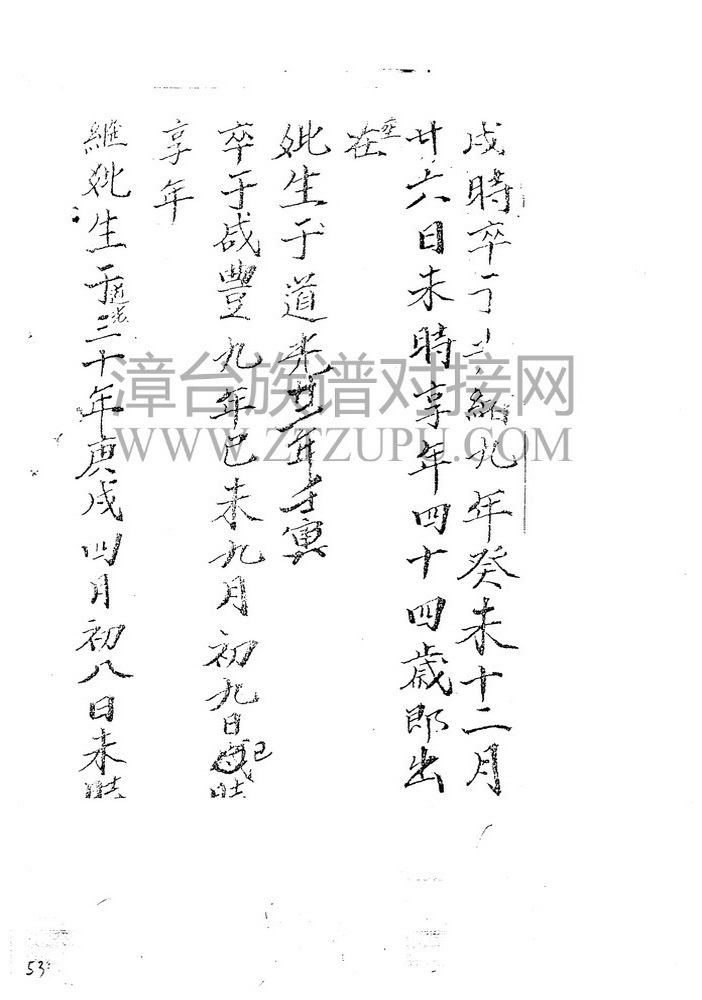 戌時卒于光緒九年癸未十二月
廿六日未時享年四十四歲即出
葬在
妣生于道光廿二年壬寅
卒于咸豐九年已未九月初九日巳時
享年
繼妣生于道光三十年庚戌四月初八日未時
漳台族谱对接网
WWW.ZTZUPU.COM
53